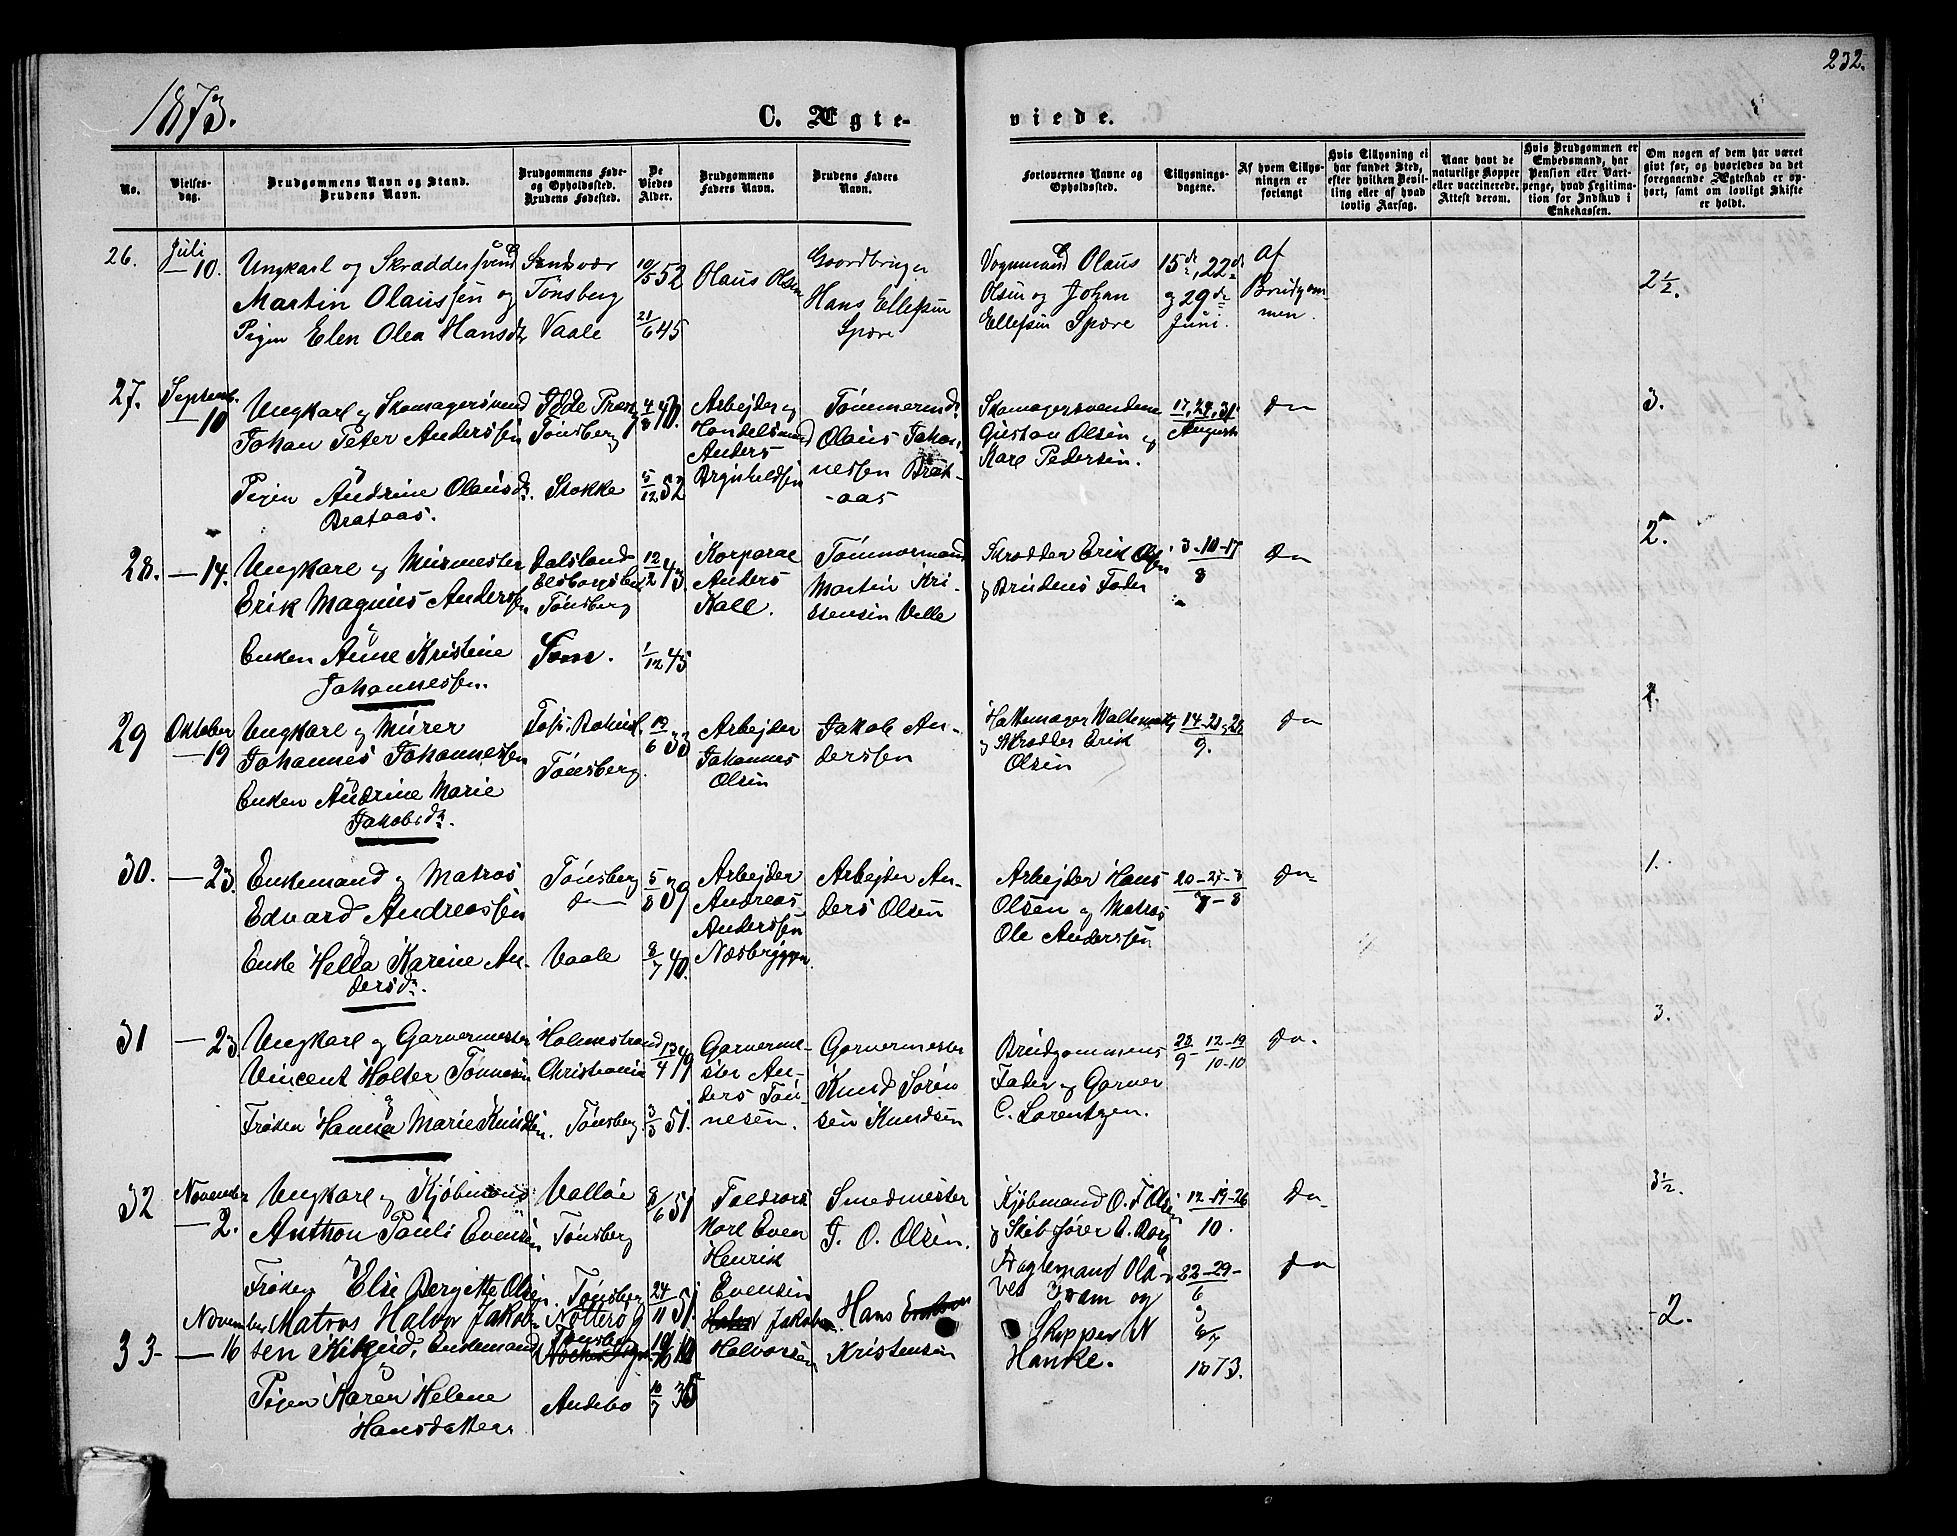 232.
1873.
C. Ægte-
viede.
No.
Vielses-
dag.
Brudgommens Navn og Stand.
Brudens Navn.
Brudgommens Føde-
og Opholdssted.
Brudens Fødested.
De
Viedes
Alder.
Brudgommens
Faders Navn.
Brudens Faders
Navn.
Forlovernes Navne og
Opholdssted.
Tillysnings-
dagene.
Af hvem Tillys-
ningen er
forlangt
Hvis Tillysning ei
har fundet Sted,
efter hvilken Bevil-
ling eller af hvad
lovlig Aarsag.
Naar havt de
naturlige Kopper
eller vaccinerede.
Attest derom.
Hvis Brudgommen er
Embedsmand, har
Pension eller Vart-
penge, hvad Legitima-
tion for Indskud i
Enkekassen.
Om nogen af dem har været
givt før, og hvorledes da det
foregaaende Ægteskab er op-
hørt, samt om lovligt Skifte
er holdt.
26.
Juli
— 10.
Ungkarl og Skræddersvend
Martin Olaussen og
Pigen Elen Olea Hansdtr
Sandsvær
Tønsberg
Vaale
10/5 52
21/6 45
Olaus Olsen
Gaardbruger
Hans Ellefsen
Spære
Vognmand Olaus
Olsen og Johan
Ellefsen Spære
15de, 22de
og 29de
Juni.
Af
Brudgom-
men.
2 1/2.
27.
Septemb.
— 10
Ungkarl og Skomagersvend
Johan Peter Anderssen
Pigen Andrine Olausdr.
Brataas.
Tønsberg
Stokke
5/12 52
Arbejder og
Handelsmand
Anders
Tømmermd.
Olaus Johan-
nessen Brat-
-aas
Skomagersvendene
Gustav Olsen og
Karl Pedersen.
17, 24, 31
August
Do
3.
28.
— 14.
Ungkarl og Murmester
Erik Magnus Anderssen
Enken Anne Kristine
Johannessen.
Dalsland
Elsborgslen
Tønsberg
Sem.
12/2 43
1/12 45
Korporal
Anders
Kall.
Tømmermand
Martin Kri-
stensen Velle
Skrædder Erik Olsen
og Brudens Fader
3-10-17
8
Do
2.
29
Oktober
— 19
Ungkarl og Murer
Johannes Johannessen
Enken Andrine Marie
Jakobsdr.
Tønsberg.
19/6 33
Arbejder
Johannes
Olsen
Jakob An-
derssen
og Skrædder Erik
Olsen
14-21-28
9.
Do
30.
— 23.
Enkemand og Matros
Edvard Andreassen
Enke Hella Karine An-
dersdr.
Tønsberg
do
Vaale
5/8 39
8/7 40.
Arbejder
Andreas
Anderssen
Næsbryggen
Arbejder An-
ders Olsen
Arbejder Hans
Olsen og Matros
Ole Anderssen
Do
1.
31
— 23
Ungkarl og Garvermester
Vincent Holter Tønnesen
Frøken Hanna Marie Knudsen.
Holmestrand
Christiania
Tønsberg
13/4 49
3/5 51.
Garverme-
ster An-
ders Tøn-
nesen.
Garvermester
Knud Søren
sen Knudsen
Brudgommens
Fader og Garver
C. Lorentzen.
28/9 - 12-19
10-10
Do.
3.
32
November
— 2.
Ungkarl og Kjøbmand
Anthon Pauli Evensen
Frøken Else Bergitte Olsen.
Valløe
Tønsberg
Tønsberg
8/6 51
24/11 51.
Even
Henrik
Evensen
Smedmester
J. O. Olsen.
Kjøbmand O. F. Olsen
og Skibsfører A. Borg
12-19-26
10.
Do
3 1/2.
33-
November
— 16
Matros Halvor Jakob-
sen Enkemand
Pigen Karen Helene
Hansdatter
Nøtterø
Tønsberg
Andebo
10/7 36
Jakob
Halvorsen
Hans
Kristensen
ved Fram og
Skipper N
Hanke.
22-29-
6
6/7
1873.
Do
-2.